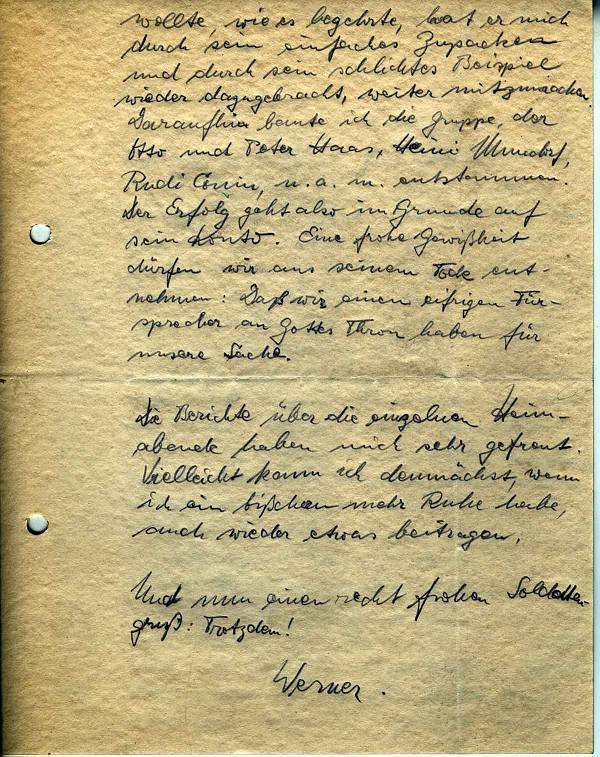 wollte, wie es begehrte, hat er mich
durch sein einfaches Zupacken
und durch sein schlichtes Beispiel
wieder dazugebracht, weiter mitzumachen.
Daraufhin baute ich die Gruppe, der
Otto und Peter Haas, Heini
Rudi u. a. m. entstammen.
Der Erfolg geht also im Grunde auf
sein Konto. Eine frohe Gewißheit
dürfen wir aus seinem Tode ent-
nehmen: Daß wir einen eifrigen Für-
sprecher an Gottes Thron haben für
unsere Sache.
Die Berichte über die einzelnen Heim-
abende haben mich sehr gefreut.
Vielleicht kann ich demnächst, wenn
ich ein bißchen mehr Ruhe habe,
auch wieder etwas beitragen.
Und nun einen recht frohen Soldaten-
gruß: Trotzdem!
Werner.